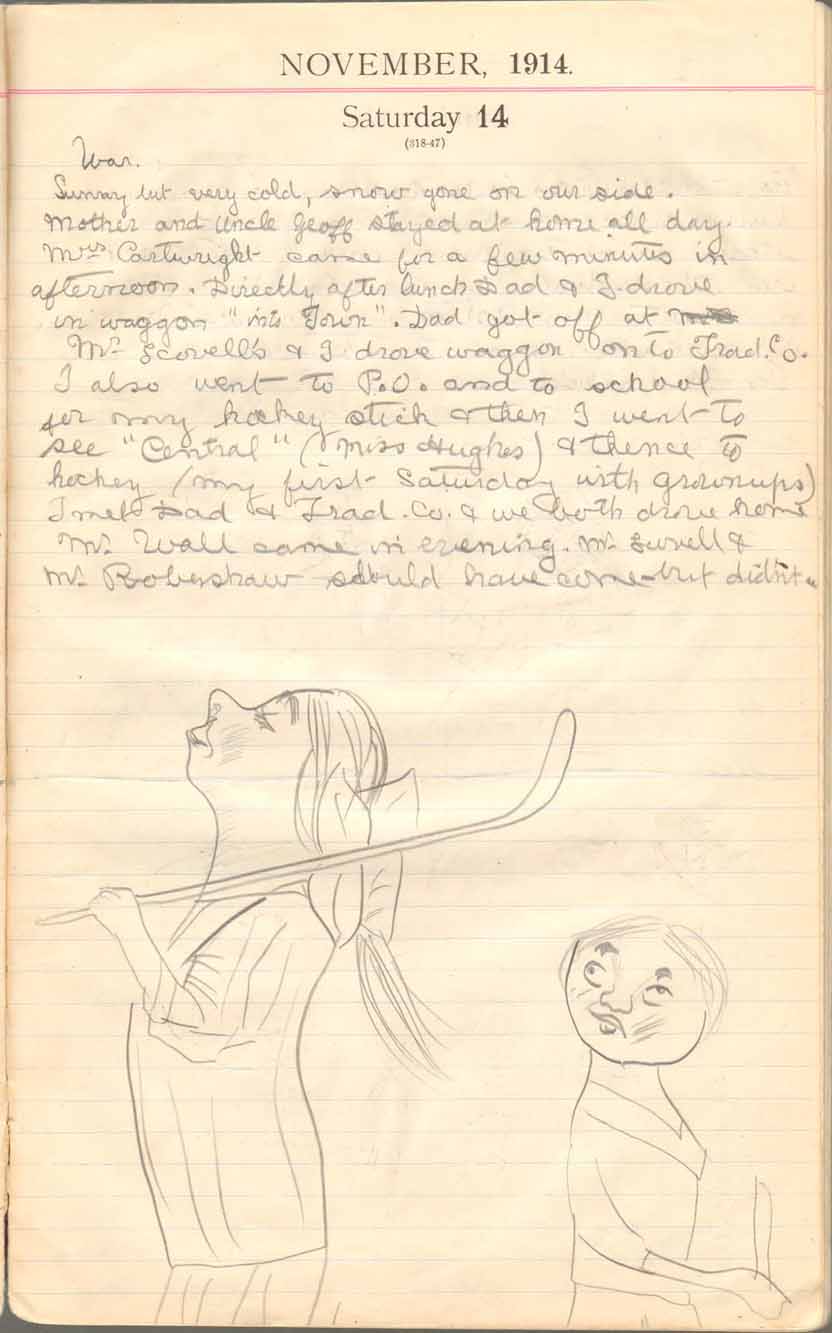 NOVEMBER, 1914.
Saturday 14
(318-47)
War.
Sunny but very cold, snow gone on our side.
Mother and Uncle Geoff stayed at home all day.
Mrs Cartwright came for a few minutes in
afternoon. Directly after lunch Dad & I drove
in waggon "into Town". Dad got off at
Mr Scovell's & I drove waggon on to Trad. Co.
I also went to P.O. and to school
for my hockey stick & then I went to
see "Central" (Miss Hughes) & thence to
hockey (my first Saturday with grownups)
I met Dad & Trad. Co. & we both drove home
Mr. Wall came in evening. Mr. &
Mr. Robershaw should have come but didn't.